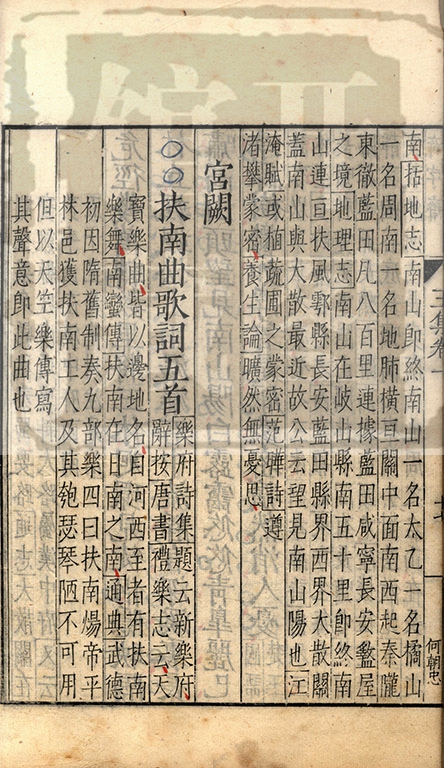 南括地志南山即終南山一名太乙一名橘山
一名周南一名地肺橫亘關中面南西起秦隴
東徹藍田凡八百里連據藍田咸寧長安盩屋
之境地理志南山在岐山縣南五十里即終南
山連亘扶風鄠縣長安藍田縣界西界大散關
蓋南山與大散最近故公云望見南山陽也江
淹賦或植蔬圃之蒙密范曄詩遵
渚攀蒙密養生論曠然無憂思
宮闕
扶南曲歌詞五首
樂府詩集題云新樂府
辭按唐書禮樂志云天
寶樂曲皆以邊地名自河西至者有扶南
樂舞南蠻傳扶南在日南之南通典武德
初因隋舊制奏九部樂四曰扶南煬帝平
林邑獲扶南工人及其匏瑟琴陋不可用
但以天竺樂傳寫
其聲意即此曲也
何朝忠